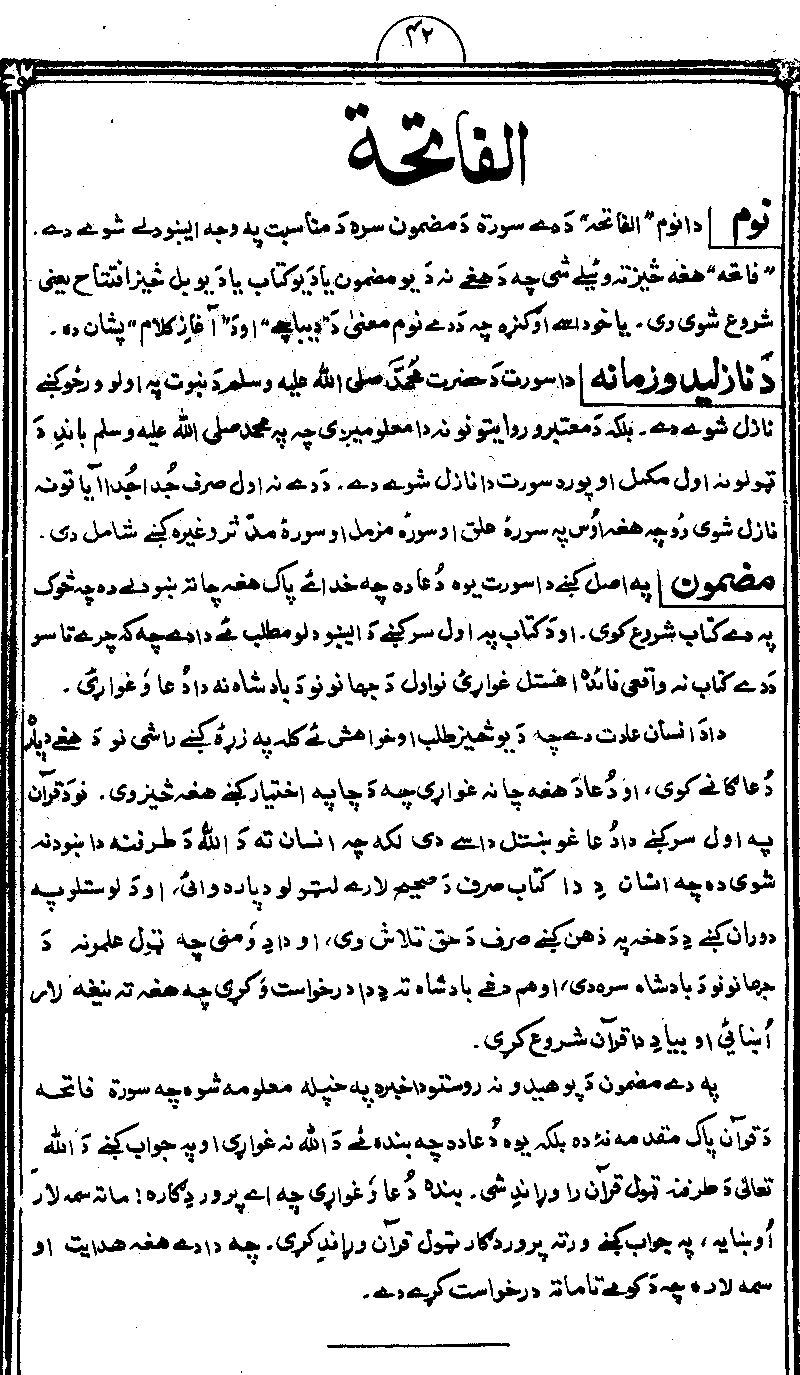 ۴۲
الفاتحة
نوم | دا نوم ”الفاتحه“ دَ دے سورة دَ مضمون سره دَ مناسبت په وجه ایښودلے شوے دے.
”فاتحه“ هغه څیز ته وئیلے شی چه دَ هغے نه دَ یو مضمون یا دَ یو کتاب یا دَ یو بل څیز افتتاح یعنی
شروع شوی دی. یا خو داسے اوګنړه چه دَ دے نوم معنیٰ دَ ”دیباچے“ او دَ ”آغازِ کلام“ پشان ده.
دَ نازلیدو زمانه | دا سورت دَ حضرت محمّد صلی الله علیه وسلم دَ نبوت په اولو ورځو کښے
نازل شوے دے. بلکه دَ معتبرو روایتونو نه دا معلومیږی چه په محمد صلی الله علیه وسلم باندِ دَ
ټولو نه اول مکمل او پوره سورت دا نازل شوے دے. دَ دے نه اول صرف جُدا جُدا آیاتونه
نازل شوی وُو چه هغه اوُس په سورهٔ علق او سورهٔ مزمل او سورهٔ مدّثر وغیره کښے شامل دی.
مضمون | په اصل کښے دا سورت یوه دُعا ده چه خدائے پاک هغه چا ته ښودلے ده چه څوک
په دے کتاب شروع کوی. او دَ کتاب په اول سر کښے دَ ایښودلو مطلب ئے دا دے چه که چرے تاسو
دَ دے کتاب نه واقعی فائده اخستل غواړئ نو اول دَ جهانونو دَ بادشاه نه دا دُعا وَ غواړئ.
دا دَ انسان عادت دے چه دَ یو څیز طلب او خواهش ئے کله په زړهٔ کښے راشی نو دَ هغے دپاره
دُعا ګانے کوی، او دُعا دَ هغه چا نه غواړی چه دَ چا په اختیار کښے هغه څیز وی. نو دَ قرآن
په اول سر کښے دا دُعا غوښتل داسے دی لکه چه انسان ته دَ الله دَ طرفنه دا ښودنه
شوی ده چه انسان دِ دا کتاب صرف دَ صحیح لارے لټولو دپاره وائی، او دَ لوستلو په
دوران کښے دِ دَ هغه په ذهن کښے صرف دَ حق تلاش وی، او دا دِ وَ منی چه ټول علمونه دَ
جهانونو دَ بادشاه سره دی، او هم دغے بادشاه ته دِ دا درخواست وَ کړی چه هغه ته نیغه لار
اُښائی او بیا دِ دا قرآن شروع کړی.
په دے مضمون دَ پوهیدو نه روستو دا خبره په خپله معلومه شوه چه سورة فاتحه
دَ قرآن پاک مقدمه نهٔ ده بلکه یوه دُعا ده چه بنده ئے دَ الله نه غواړی او په جواب کښے دَ الله
تعالیٰ دَ طرفنه ټول قرآن را وړاندِ شی. بنده دُعا وَ غواړی چه اے پروردګاره! ما ته سمه لار
اُوښایه، په جواب کښے ورته پروردګار ټول قرآن وړاندِ کړی. چه دا دے هغه هدایت او
سمه لار ده چه دَ کومے تا ما ته درخواست کړے دے.